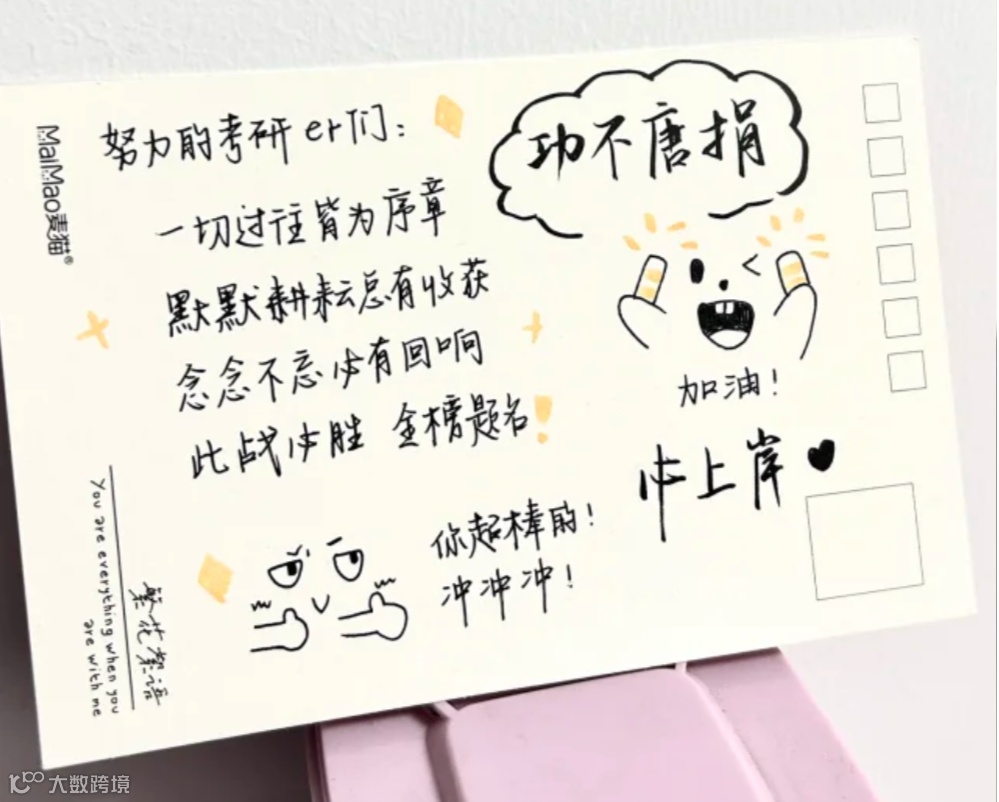 努力的考研er们：
一切过往皆为序章
默默耕耘总有收获
念念不忘必有回响
此战必胜 金榜题名！
功不唐捐
加油！
必上岸
你超棒的！
冲冲冲！
MaiMao麦猫®
繁花絮语
You are everything when you
are with me
大数跨境